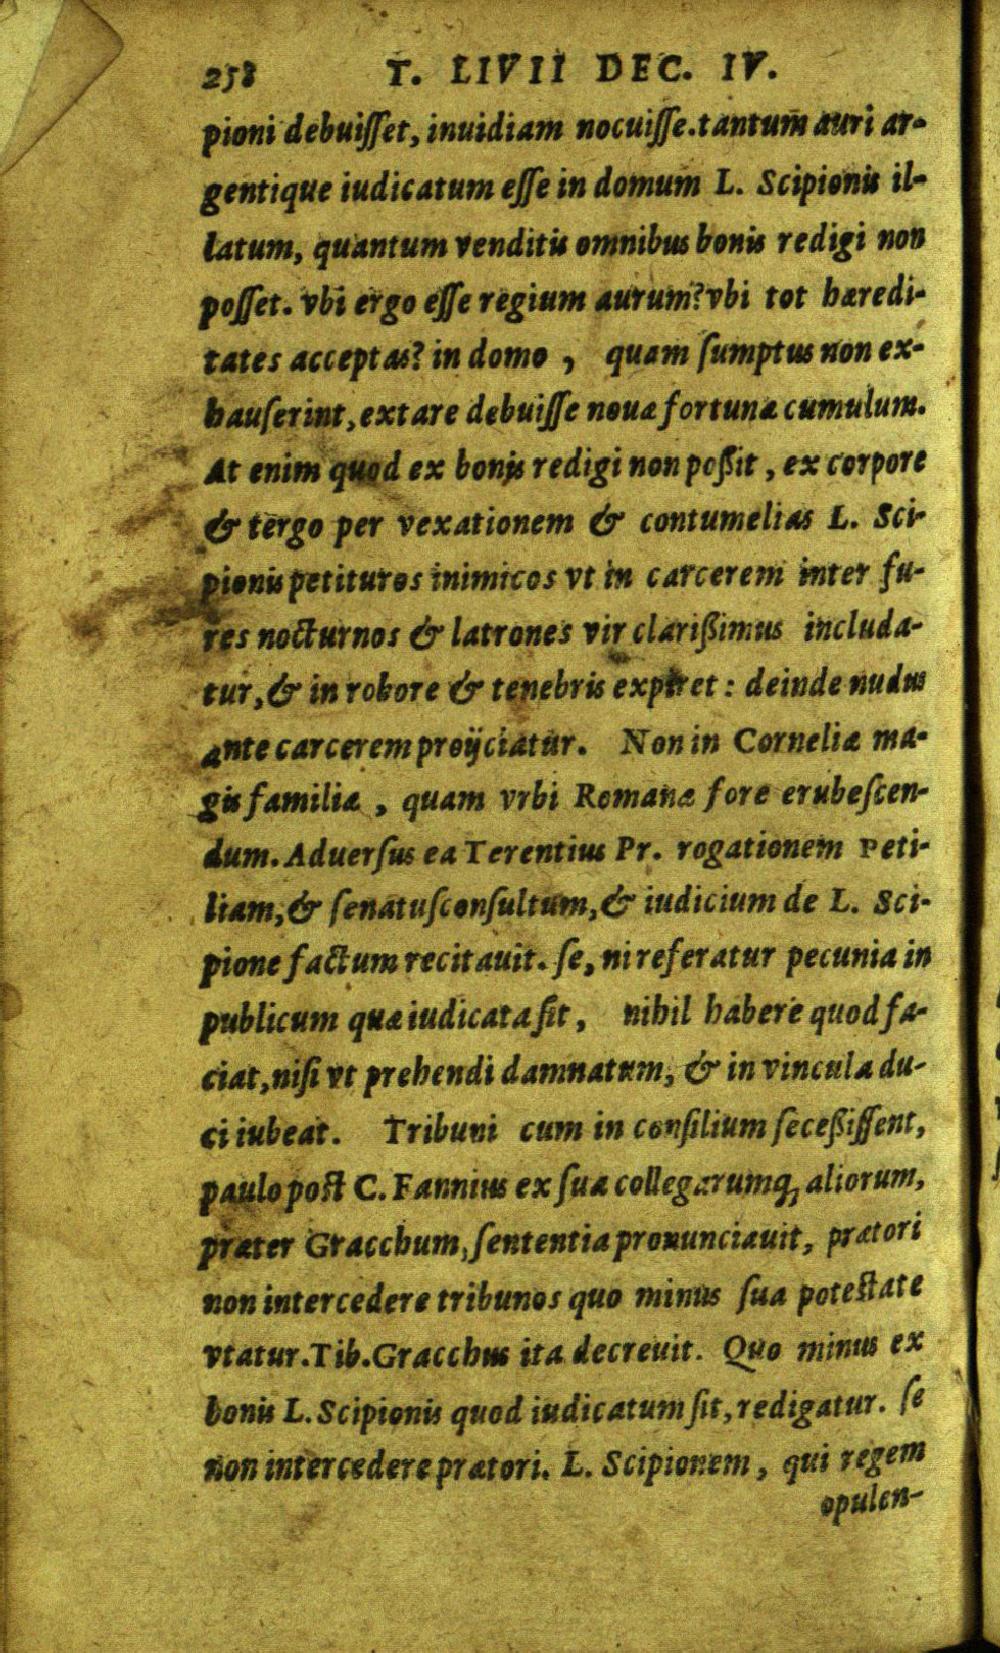 258 T. LIVII DEC. IV.
pioni debuiſſet, inuidiam nocuiſſe. tantum̄ auri ar-
gentique iudicatum eſſe in domum L. Scipionis il-
latum, quantum venditis omnibus bonis redigi non
poſſet. vbi ergo eſſe regium aurum? vbi tot hæredi-
tates acceptas? in domo , quam ſumptus non ex-
hauſerint, extare debuiſſe nouæ fortunæ cumulum.
At enim quod ex bonis redigi non poßit , ex corpore
& tergo per vexationem & contumelias L. Sci-
pionis petituros inimicos vt in carcerem inter fu-
res nocturnos & latrones vir clarißimus includa-
tur, & in robore & tenebris expiret : deinde nudus
ante carcerem proijciatur. Non in Corneliæ ma-
gis familiæ , quam vrbi Romanæ fore erubeſcen-
dum. Aduerſus ea Terentius Pr. rogationem Peti-
liam, & ſenatuſconſultum, & iudicium de L. Sci-
pione factum recitauit. ſe, ni referatur pecunia in
publicum quæ iudicata ſit , nihil habere quod fa-
ciat, niſi vt prehendi damnatum, & in vincula du-
ci iubeat. Tribuni cum in conſilium ſeceßiſſent,
paulo poſt C. Fannius ex ſua collegarumq; aliorum,
præter Gracchum, ſententia pronunciauit, prætori
non intercedere tribunos quo minus ſua poteſtate
vtatur. Tib. Gracchus ita decreuit. Quo minus ex
bonis L. Scipionis quod iudicatum ſit, redigatur. ſe
non intercedere prætori. L. Scipionem , qui regem
opulen-